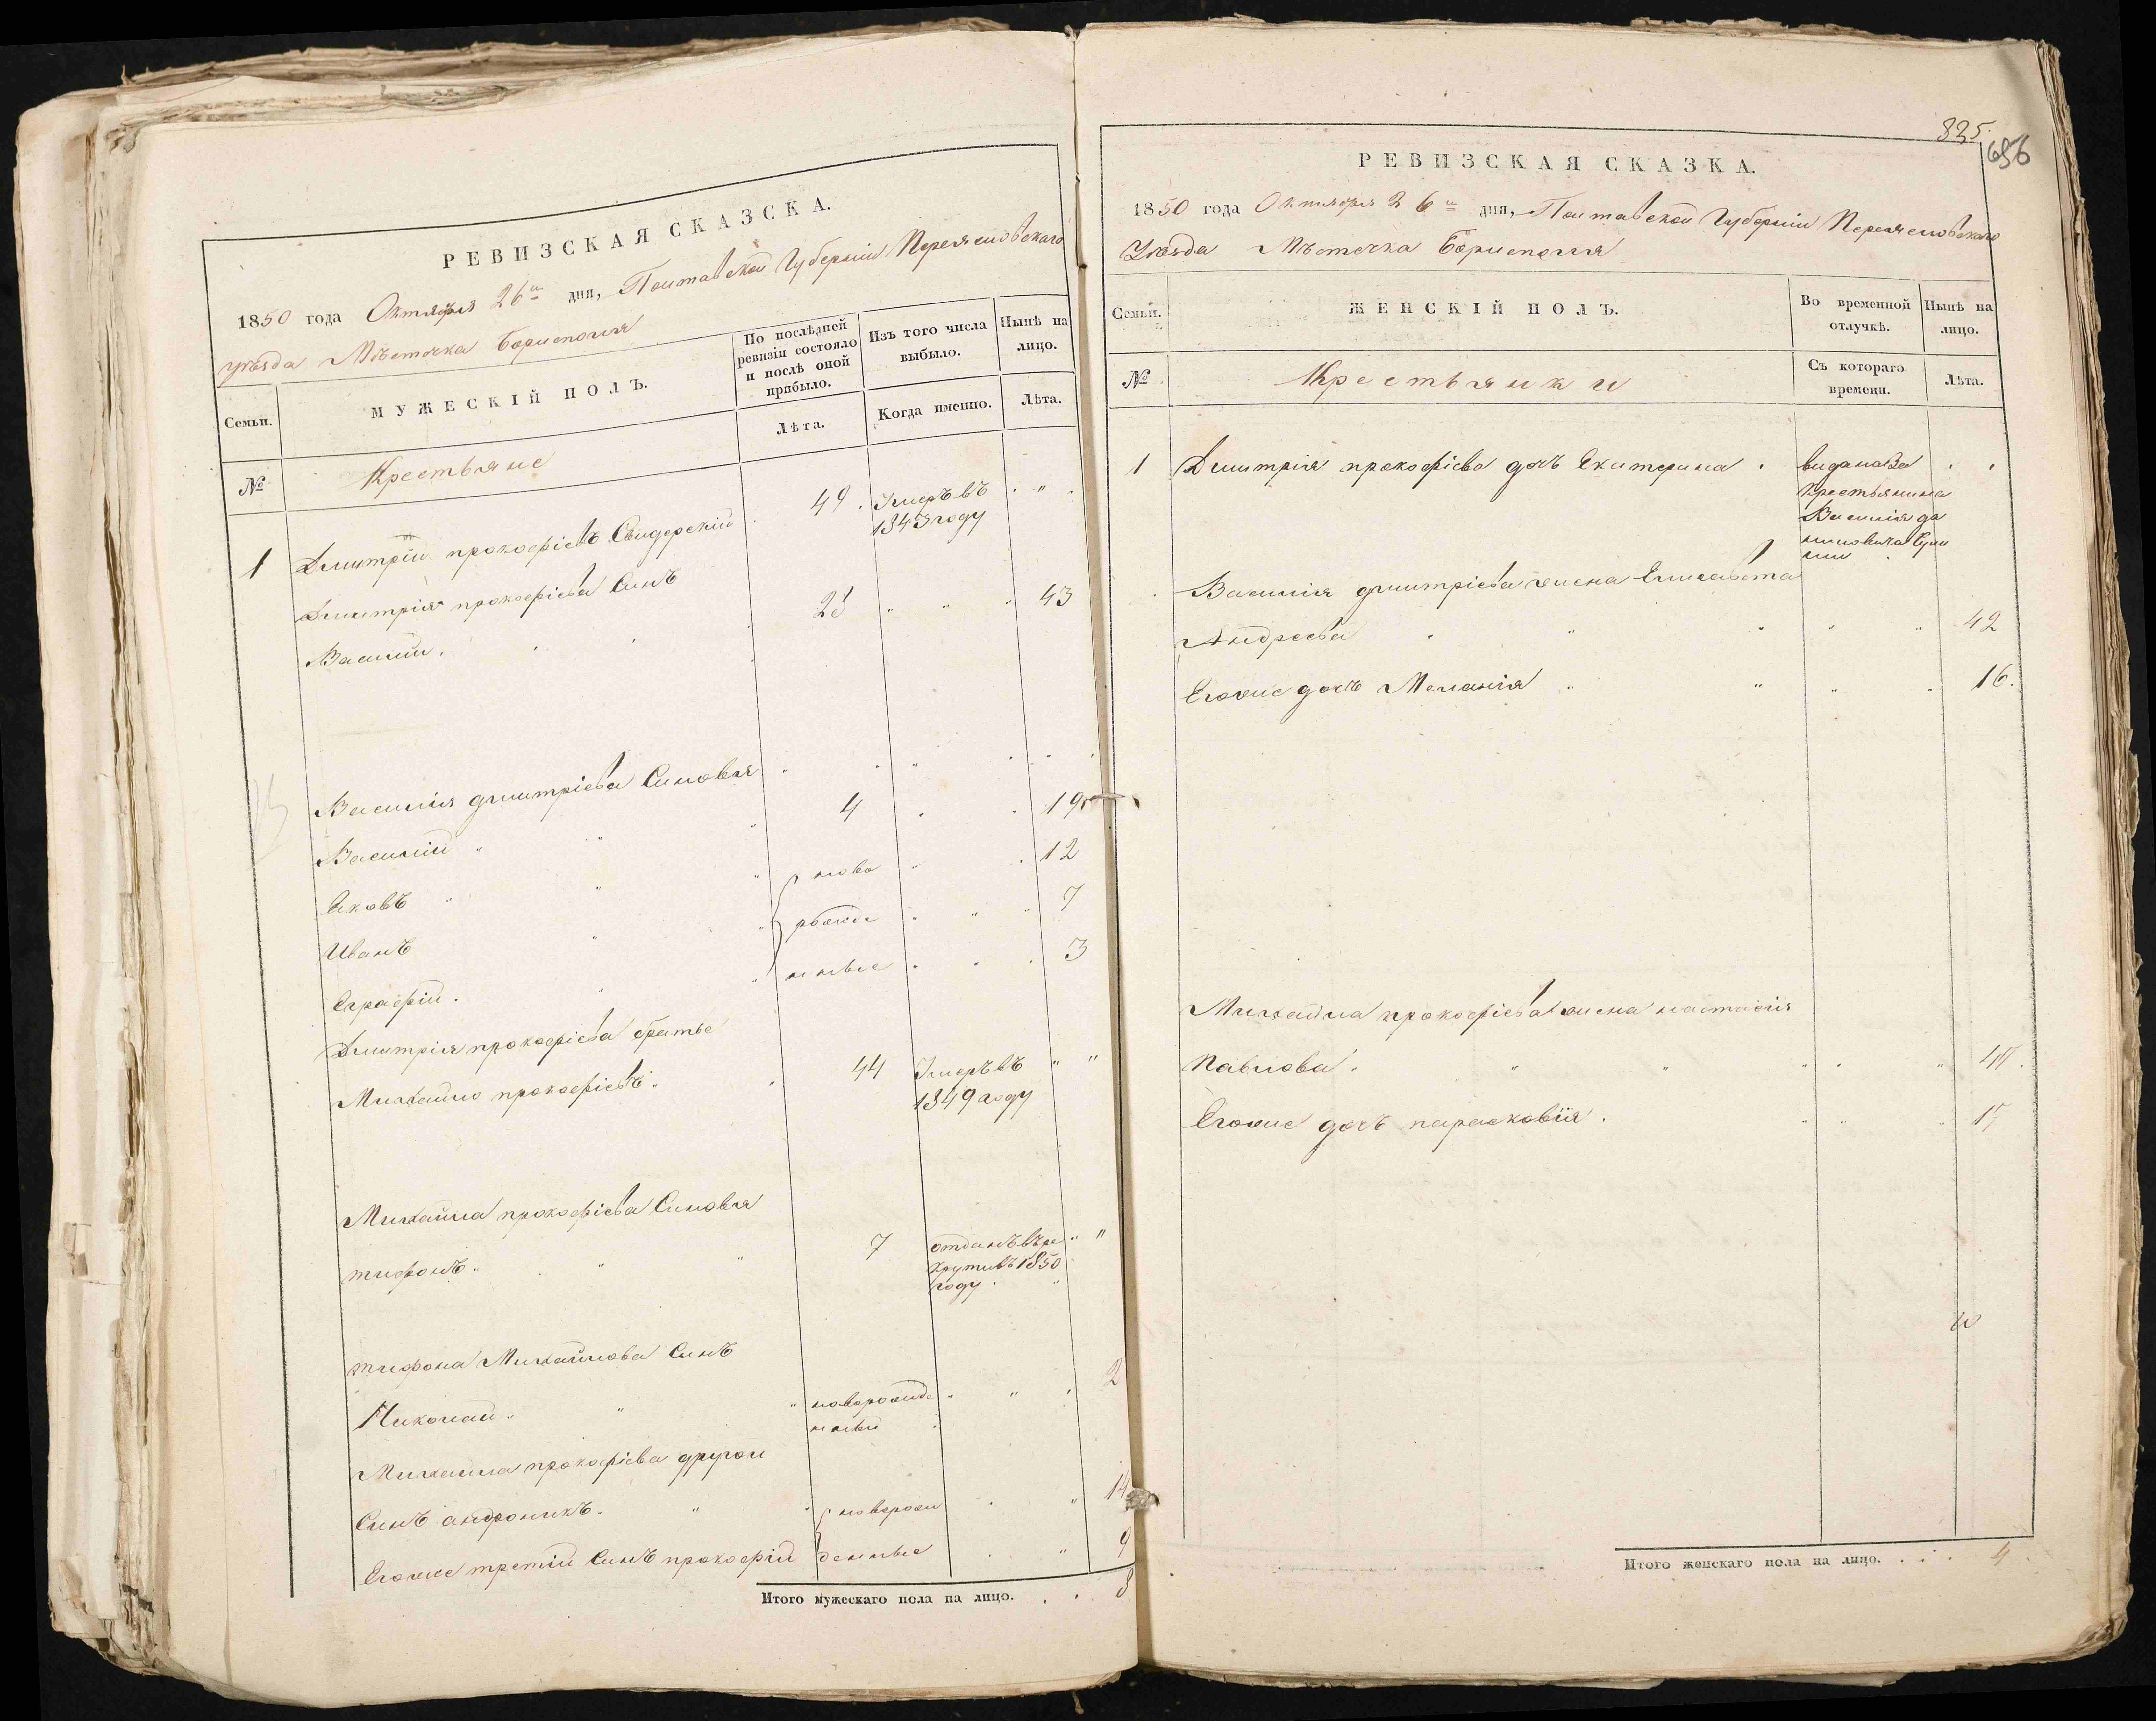 РЕВИЗСКАЯ СКАЗСКА.
1850 года Октября 26го дня, Полтавской Губерніи Переясловскаго
уѣзда Мѣстечка Борисполя
Семьи.
МУЖЕСКІЙ ПОЛЪ.
По послѣдней ревизіи состояло и послѣ оной прибыло.
Изъ того числа выбыло.
Нынѣ на лицо.
№
Крестьяне
Лѣта.
Когда именно.
Лѣта.
1 Дмитрій прокофіевъ Свидерскій 49. Умеръ въ " 
1843 году
Дмитрія прокофіева Синъ
Василій. 28 " " 43
Василія дмитріева Синовья
Василій " 4 19
Яковъ " ново " 12
Иванъ рожде " 7
Еграфій. нные 3
Дмитрія прокофіева братье
Михайло прокофіевъ. 44 Умеръ въ " "
1849 году
Михайла прокофіева Синовья
тифонъ. 7 отданъ въ ре " "
крути въ 1850
году.
тифона Михайлова Синъ
Николай. " новорожде " " 2
нный
Михайла прокофіева другой
Синъ андроникъ. " новорож " 14
Егоже третій Синъ прокофій денные " 9
Итого мужескаго пола на лицо. . . 8
835.
656
РЕВИЗСКАЯ СКАЗКА.
1850 года Октября 26го дня, Полтавской Губерніи Переясловскаго
Уѣзда Мѣстечка Борисполя
Семьи.
ЖЕНСКІЙ ПОЛЪ.
Во временной отлучкѣ.
Нынѣ на лицо.
№
Крестьянки
Съ котораго времени.
Лѣта.
1 Дмитрія прокофіева дочь Екатерина . видана За
Крестьянина
Василія да
Василія дмитріева жена Елисавета
Андреева " " " 42
Егоже дочъ Меланія " " " 16.
Михайла прокофіева жена настасія
Павлова. " " "
Егоже дочъ парасковія.
Итого женскаго пола на лицо. . . . 4